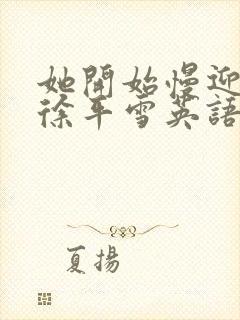 她開始慢迎
徐平雪英語
夏揚